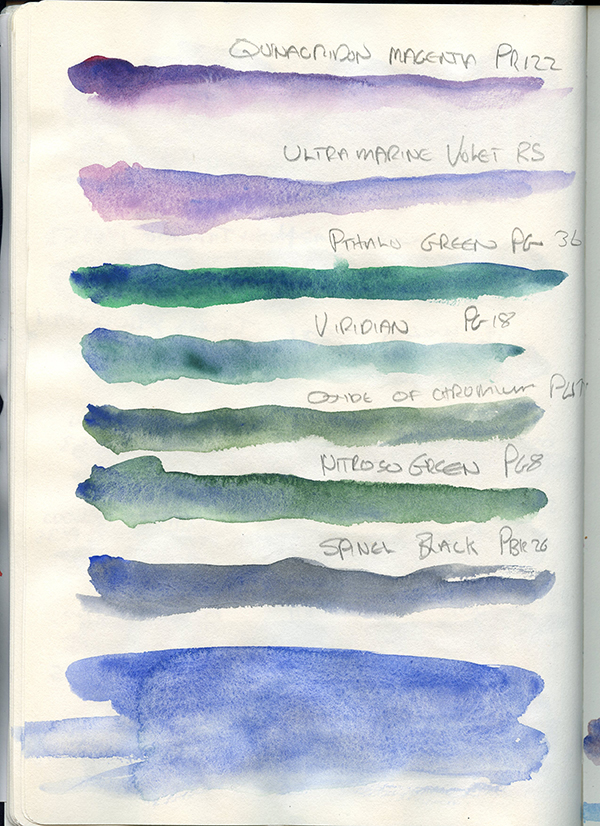 QUINACRIDON MAGENTA PR122
ULTRAMARINE VIOLET RS
PTHALO GREEN PG 36
VIRIDIAN PG18
OXIDE OF CHROMIUM
NITROSO GREEN PG8
SPINEL BLACK PBK26